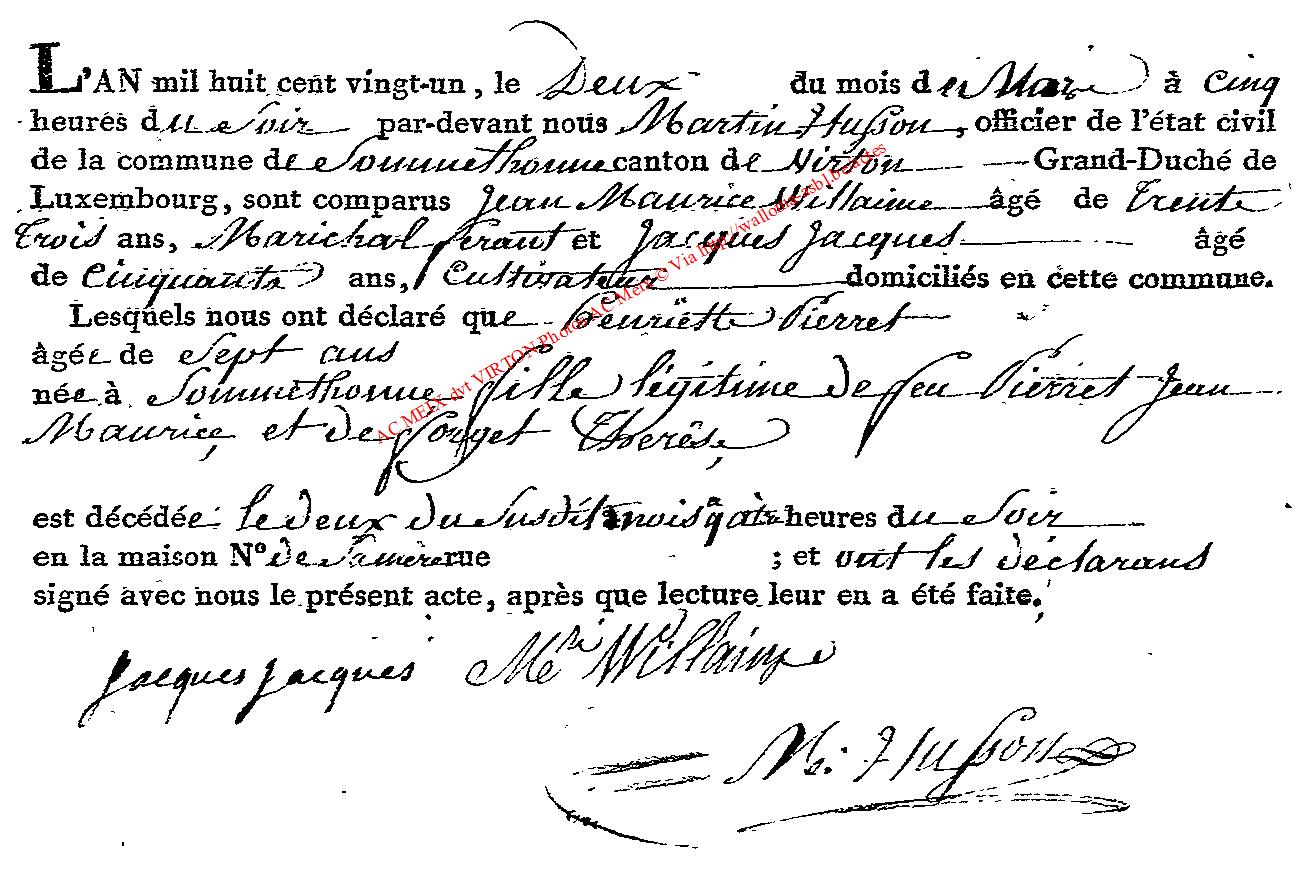 L'AN mil huit cent vingt-un, le Deux du mois de Mars à Cinq
heures du Soir par-devant nous Martin Husson, officier de l'état civil
de la commune de Sommethonne canton de Virton Grand-Duché de
Luxembourg, sont comparus Jean Maurice Willaime âgé de trente
trois ans, Marichal ferant et Jacques Jacques âgé
de Cinquante ans, Cultivateur domiciliés en cette commune.
Lesquels nous ont déclaré que henriette Pierret
âgée de Sept ans
née à Sommethonne fille légitime de feu Pierret Jean
Maurice, et de Forget Therêse,
est décédée le deux du Susdit mois à quatre heures du Soir
en la maison N° de Sa mere rue ; et ont les déclarans
signé avec nous le présent acte, après que lecture leur en a été faite.
Jacques Jacques Willaime
M. Husson
AC MEIX dvt VIRTON Photos AC Meix © Via http://wallonia.asbl.be/actes